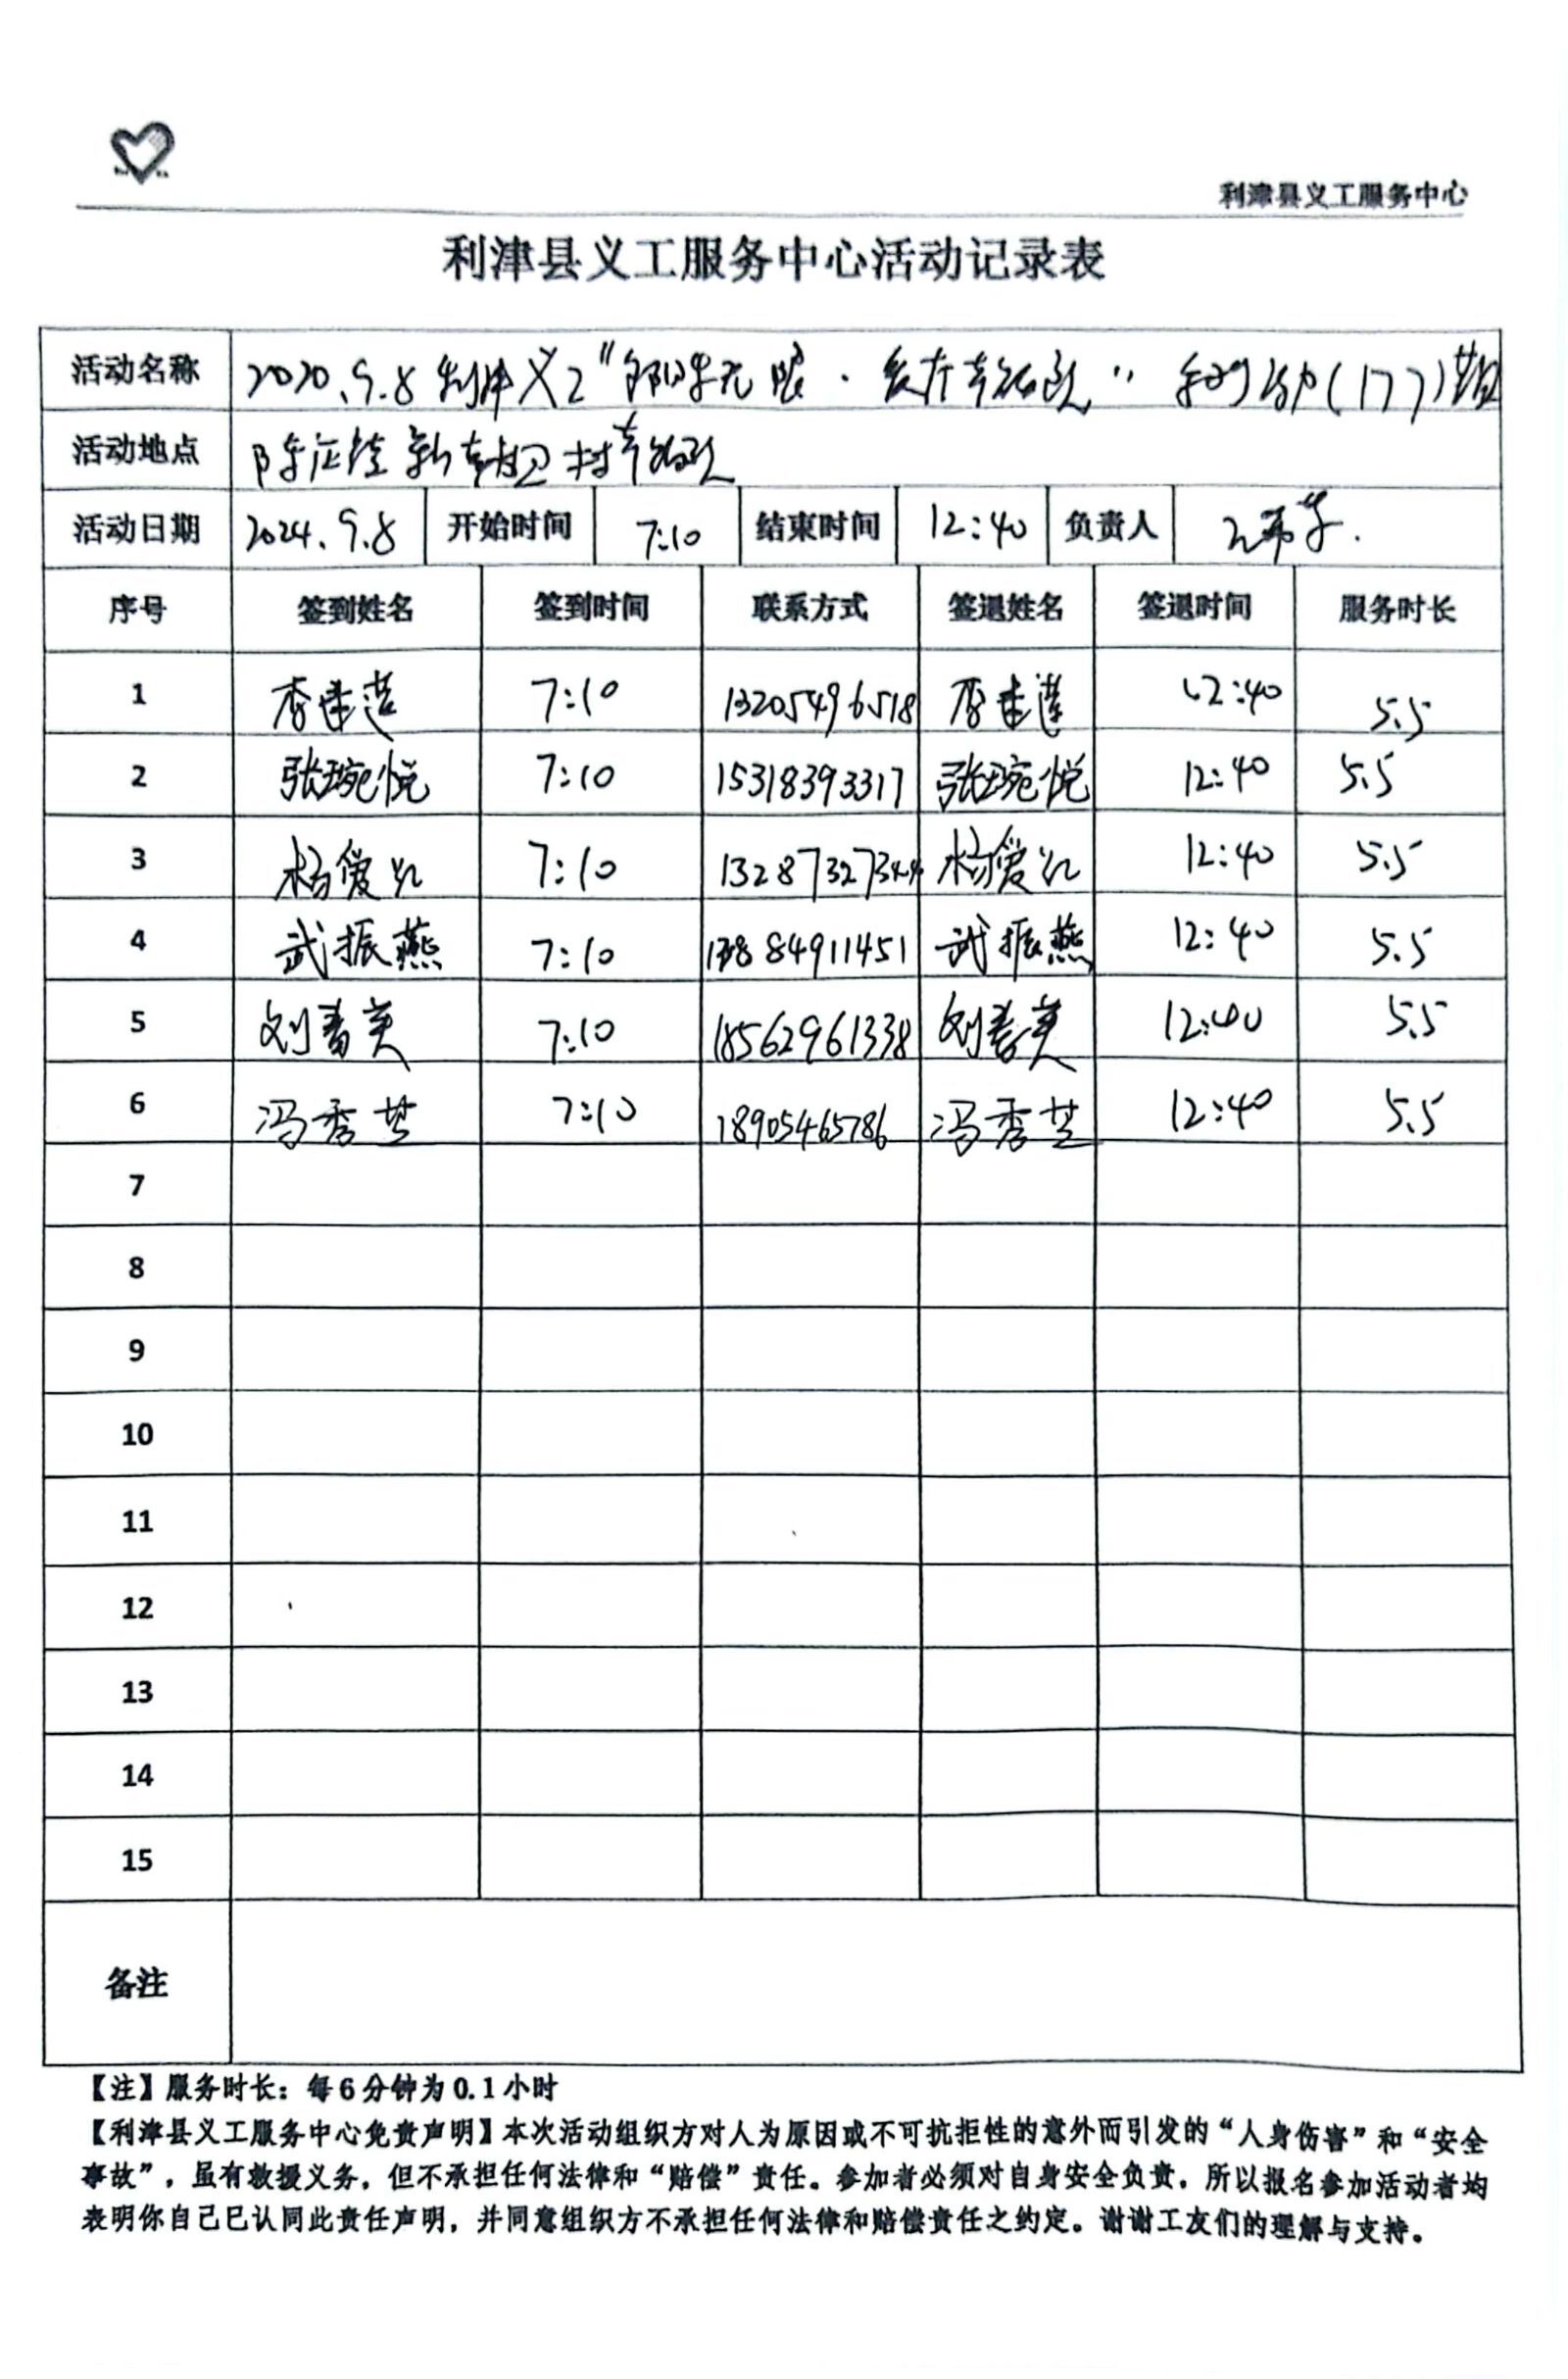 利津县义工服务中心
利津县义工服务中心活动记录表
活动名称 2020.9.8 利津义工“ 无限·爱在幸福院” (177)期
活动地点 陈庄镇新 村幸福院
活动日期 2024.9.8 开始时间 7:10 结束时间 12:40 负责人
序号 签到姓名 签到时间 联系方式 签退姓名 签退时间 服务时长
1 李 莲 7:10 13205496518 李 莲 12:40 5.5
2 张琬悦 7:10 15318393317 张琬悦 12:40 5.5
3 杨爱红 7:10 杨爱红 12:40 5.5
4 武振燕 7:10 13884911451 武振燕 12:40 5.5
5 刘春英 7:10 18562961338 刘春英 12:40 5.5
6 冯秀芝 7:10 18905465786 冯秀芝 12:40 5.5
7
8
9
10
11
12
13
14
15
备注
【注】服务时长：每6分钟为0.1小时
【利津县义工服务中心免责声明】本次活动组织方对人为原因或不可抗拒性的意外而引发的“人身伤害”和“安全
事故”，虽有救援义务，但不承担任何法律和“赔偿”责任。参加者必须对自身安全负责，所以报名参加活动者均
表明你自己已认同此责任声明，并同意组织方不承担任何法律和赔偿责任之约定。谢谢工友们的理解与支持。